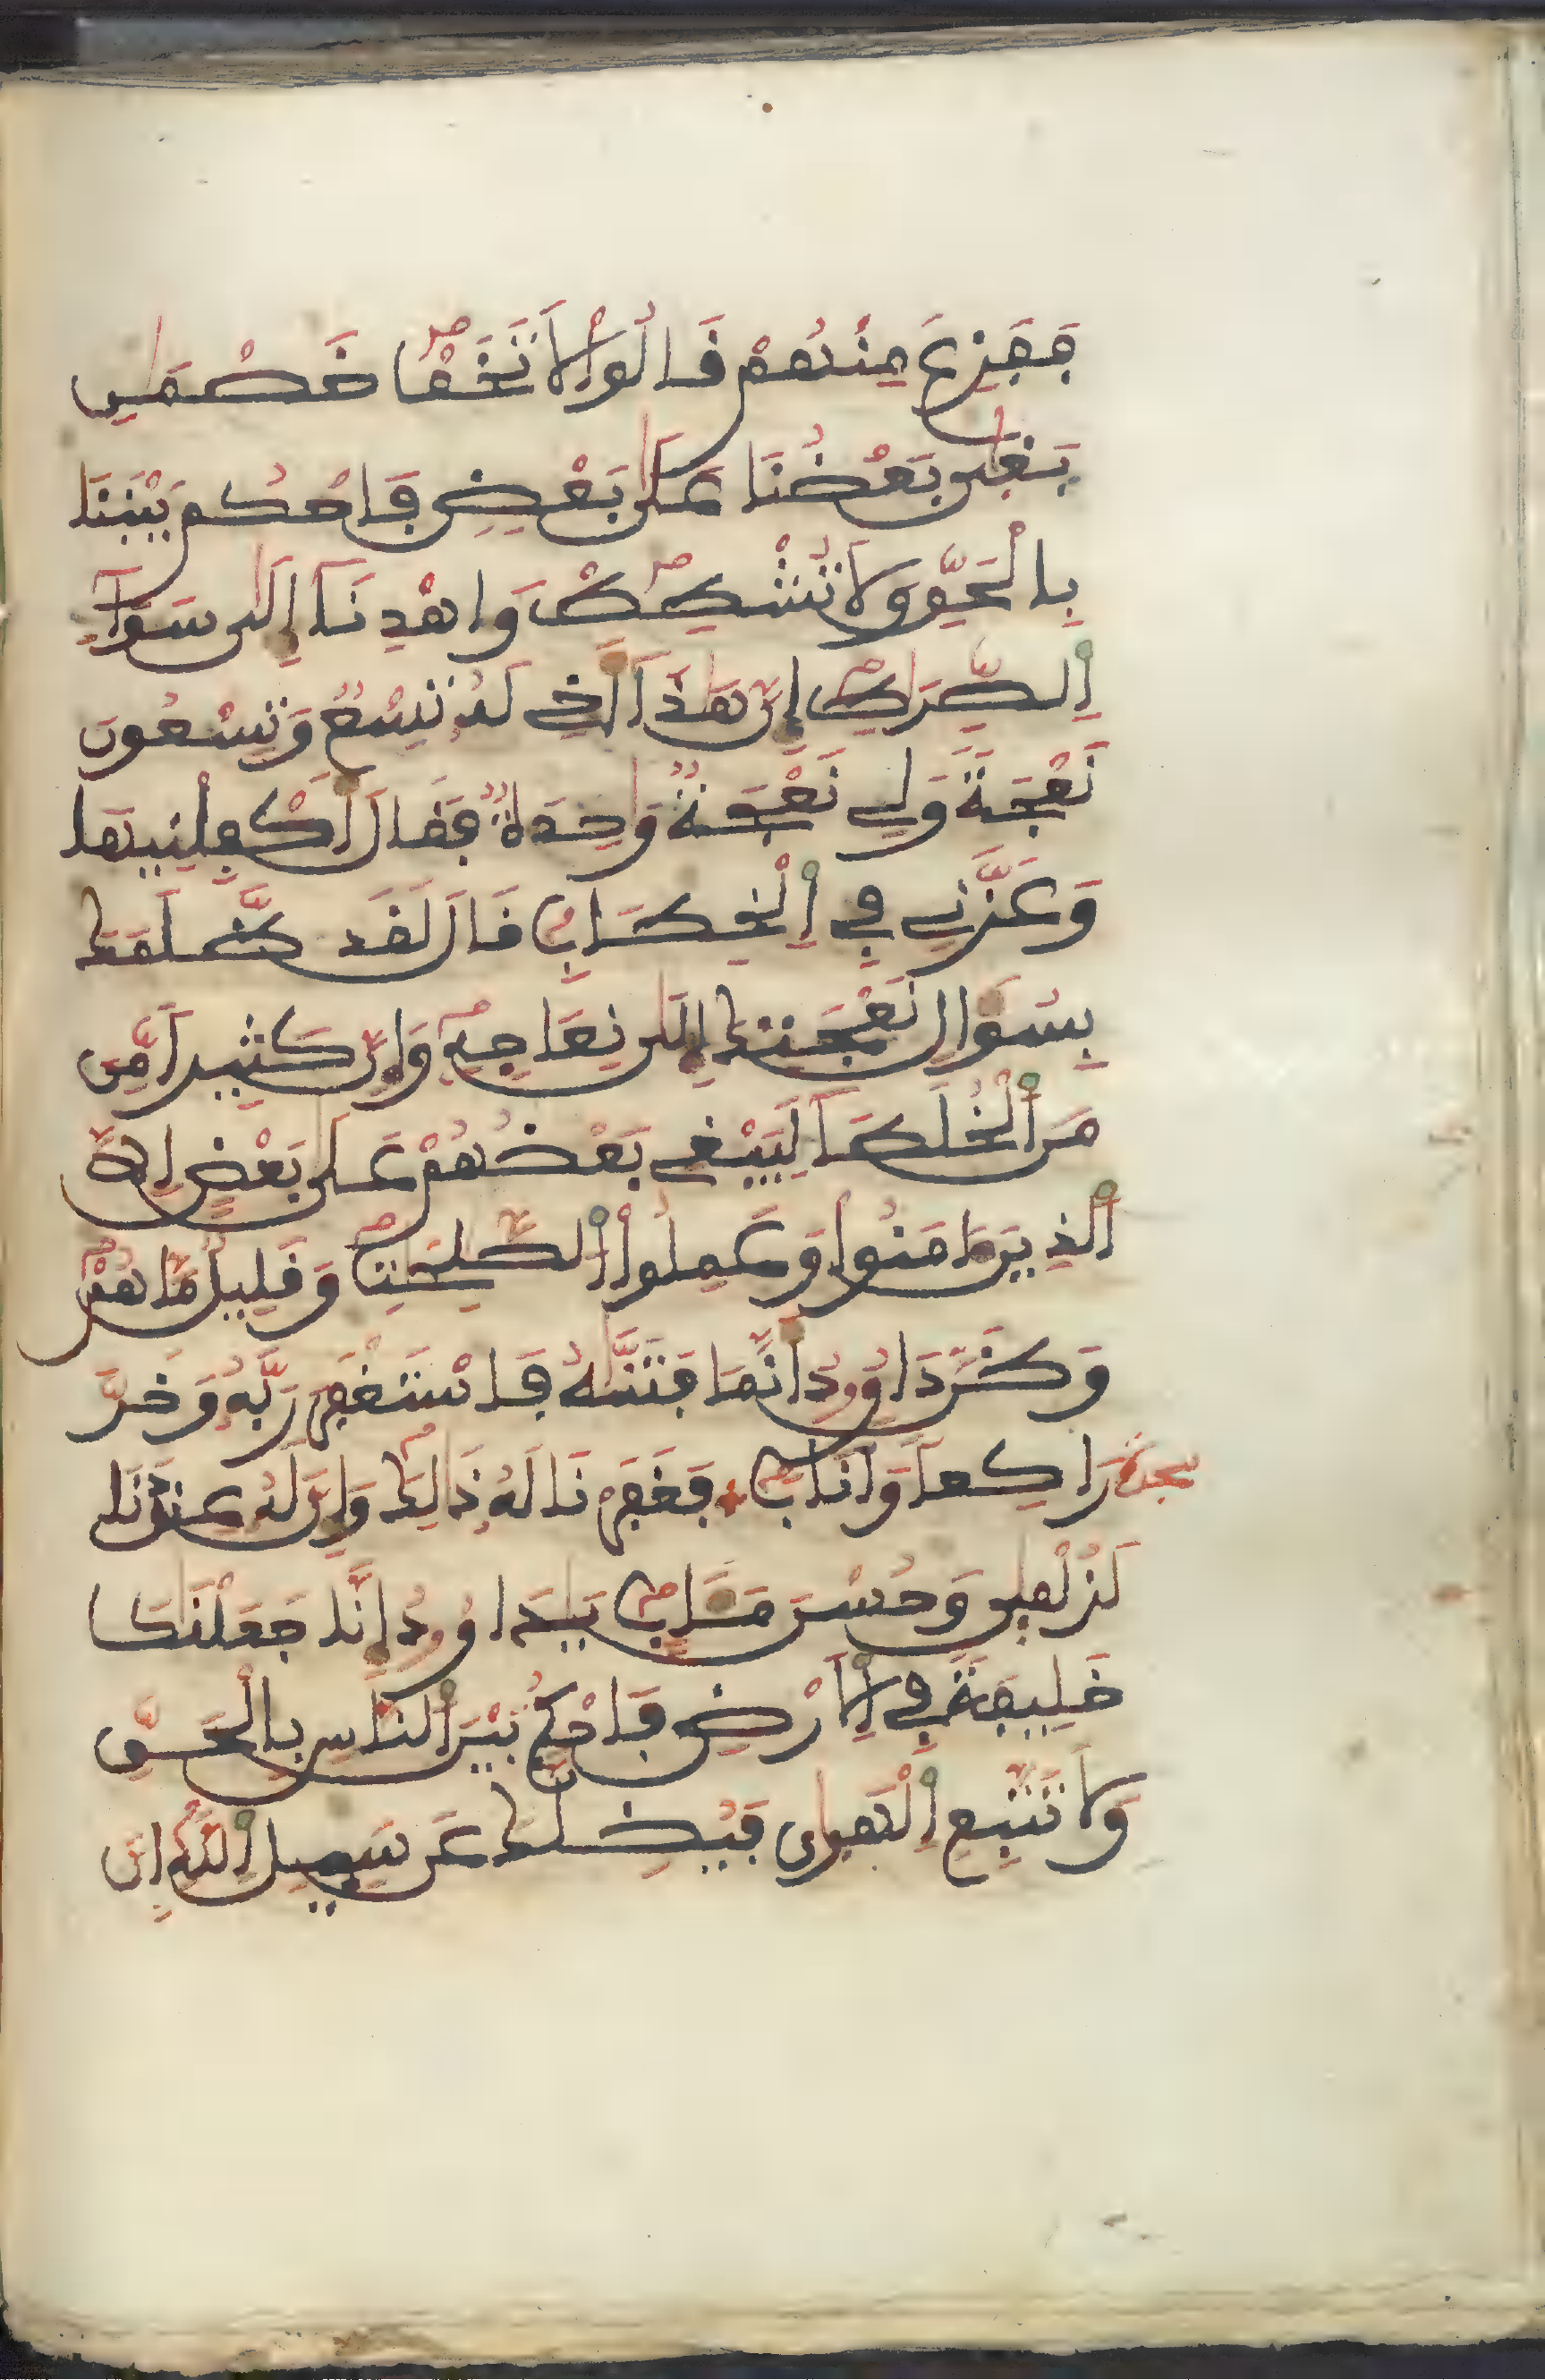 فَفَزِعَ مِنْهُمْ قَالُواْ لَا تَخَفْ خَصْمَٰنِ
بَغَىٰ بَعْضُنَا عَلَىٰ بَعْضٍ فَاحْكُم بَيْنَنَا
بِالْحَقِّ وَلَا تُشْطِطْ وَاهْدِنَآ إِلَىٰ سَوَآءِ
اِ۬لصِّرَٰطِ إِنَّ هَٰذَآ أَخِے لَهُۥ تِسْعٌ وَتِسْعُونَ
نَعْجَةً وَلِے نَعْجَةٌ وَٰحِدَةٌ فَقَالَ أَكْفِلْنِيهَا
وَعَزَّنِے فِے اِ۬لْخِطَابِ قَالَ لَقَد ظَّلَمَكَ
بِسُؤَالِ نَعْجَتِكَ إِلَىٰ نِعَاجِهِۦ وَإِنَّ كَثِيراً مِّنَ
مَنَ اَ۬لْخُلَطَآ لَيَبْغِے بَعْضُهُمْ عَلَىٰ بَعْضٍ اِلَّا
اَ۬لذِينَ ءَامَنُواْ وَعَمِلُواْ اُ۬لصَّٰلِحَٰتِ وَقَلِيلٌ مَّا هُمْ
وَظَنَّ دَاوُۥدُ أَنَّمَا فَتَنَّٰهُ فَاسْتَغْفَرَ رَبَّهُۥ وَخَرَّ
سجدة رَاكِعاً وَأَنَابَ فَغَفَرْنَا لَهُۥ ذَٰلِكَ وَإِنَّ لَهُۥ عِندَنَا
لَزُلْفَىٰ وَحُسْنَ مَـَٔابٍ يَٰدَاوُۥدُ إِنَّا جَعَلْنَٰكَ
خَلِيفَةً فِے اِ۬لَارْضِ فَاحْكُم بَيْنَ اَ۬لنَّاسِ بِالْحَقِّ
وَلَا تَتَّبِعِ اِ۬لْهَوَىٰ فَيُضِلَّكَ عَن سَبِيلِ اِ۬للَّهِ إِنَّ